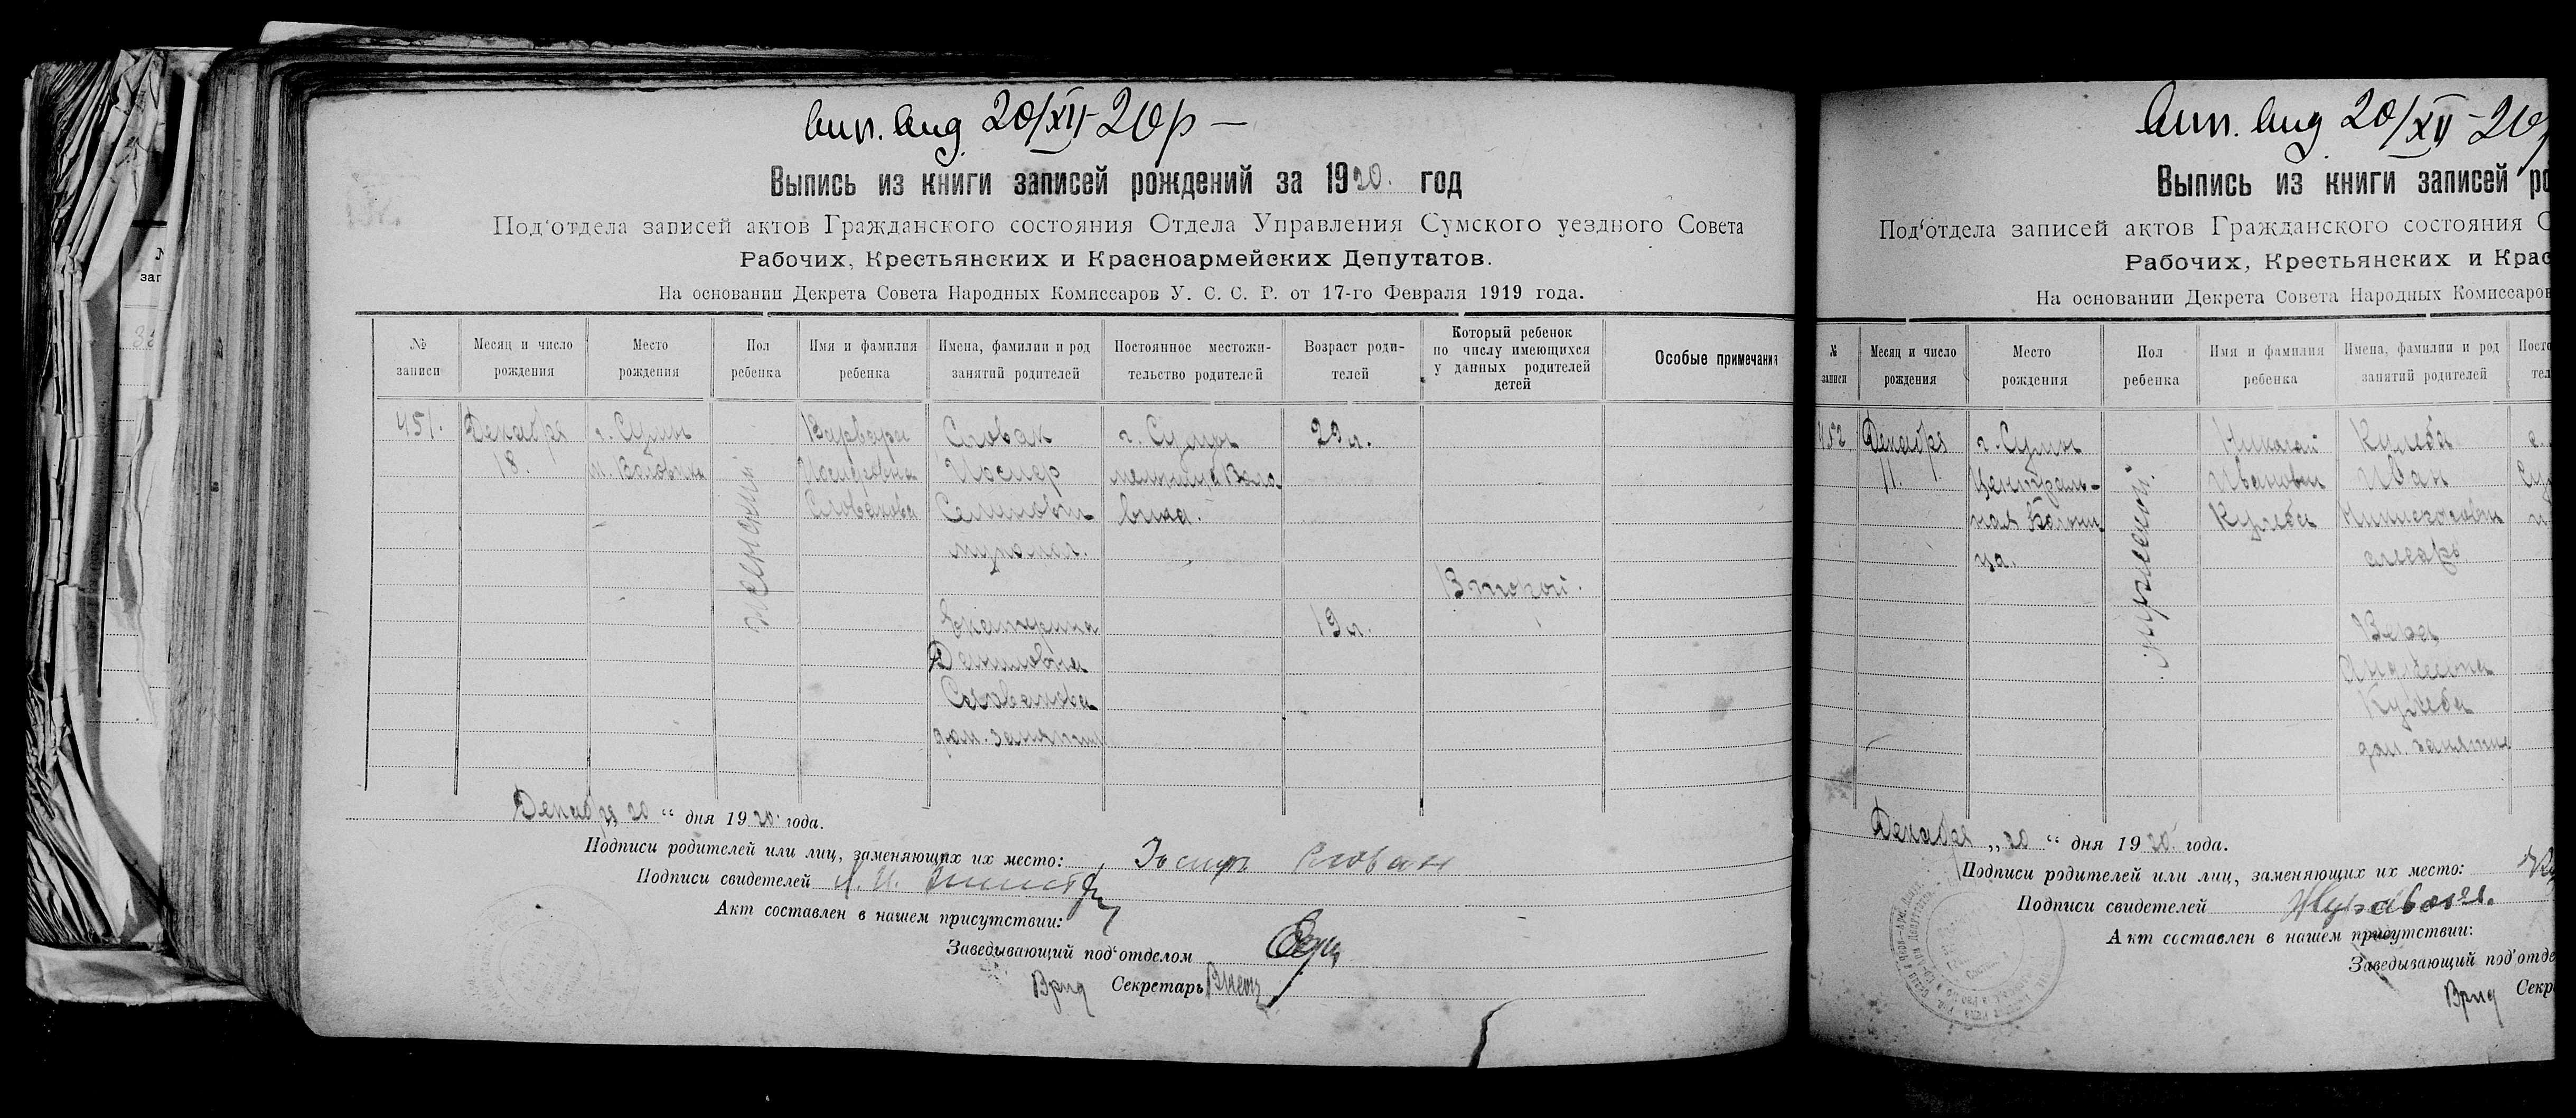 вип. вид. 20/XII-20р —
Выпись из книги записей рождений за 1920. год
Под'отдела записей актов Гражданского состояния Отдела Управления Сумского уездного Совета
Рабочих, Крестьянских и Красноармейских Депутатов.
На основании Декрета Совета Народных Комиссаров У. С. С. Р. от 17-го Февраля 1919 года.
№ записи
Месяц и число рождения
Место рождения
Пол ребенка
Имя и фамилия ребенка
Имена, фамилии и род занятий родителей
Постоянное местожительство родителей
Возраст родителей
Который ребенок по числу имеющихся у данных родителей детей
Особые примечания
451.
Декабря
18.
г. Сумы
женский
Варвара
Иосифовна
Словакова
Словак
Иосиф
г. Сумы
29 л.
Второй.
Екатерина
Даниловна
Словакова
дом. занятия
19 л.
Декабря 20 “ дня 1920. года.
Подписи родителей или лиц, заменяющих их место: Іосиф Слован
Подписи свидетелей
Акт составлен в нашем присутствии:
Заведывающий под'отделом
Врид Секретарь
вип. вид 20/XII-20
Выпись из книги записей ро
Под'отдела записей актов Гражданского состояния О
Рабочих, Крестьянских и Крас
На основании Декрета Совета Народных Комиссаров
№ записи
Месяц и число рождения
Место рождения
Пол ребенка
Имя и фамилия ребенка
Имена, фамилии и род занятий родителей
Посто
тел
452
Декабря
11.
г. Сумы
Централь-
ная больни
ца.
мужеский.
Николай
Иванович
Кулеба
Кулеба
Иван
слесарь
Вера
Кулеба
дом. занятие
Декабря „20 “ дня 1920. года.
Подписи родителей или лиц, заменяющих их место:
Подписи свидетелей
Акт составлен в нашем присутствии:
Заведывающий под'отде
Врид Секре